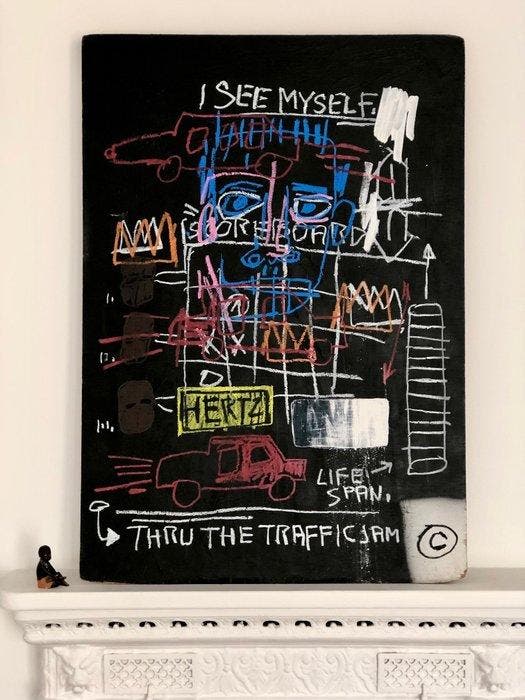 I SEE MYSELF.
SCOREBOARD
HERTZ
LIFE
SPAN.
THRU THE TRAFFIC JAM
©